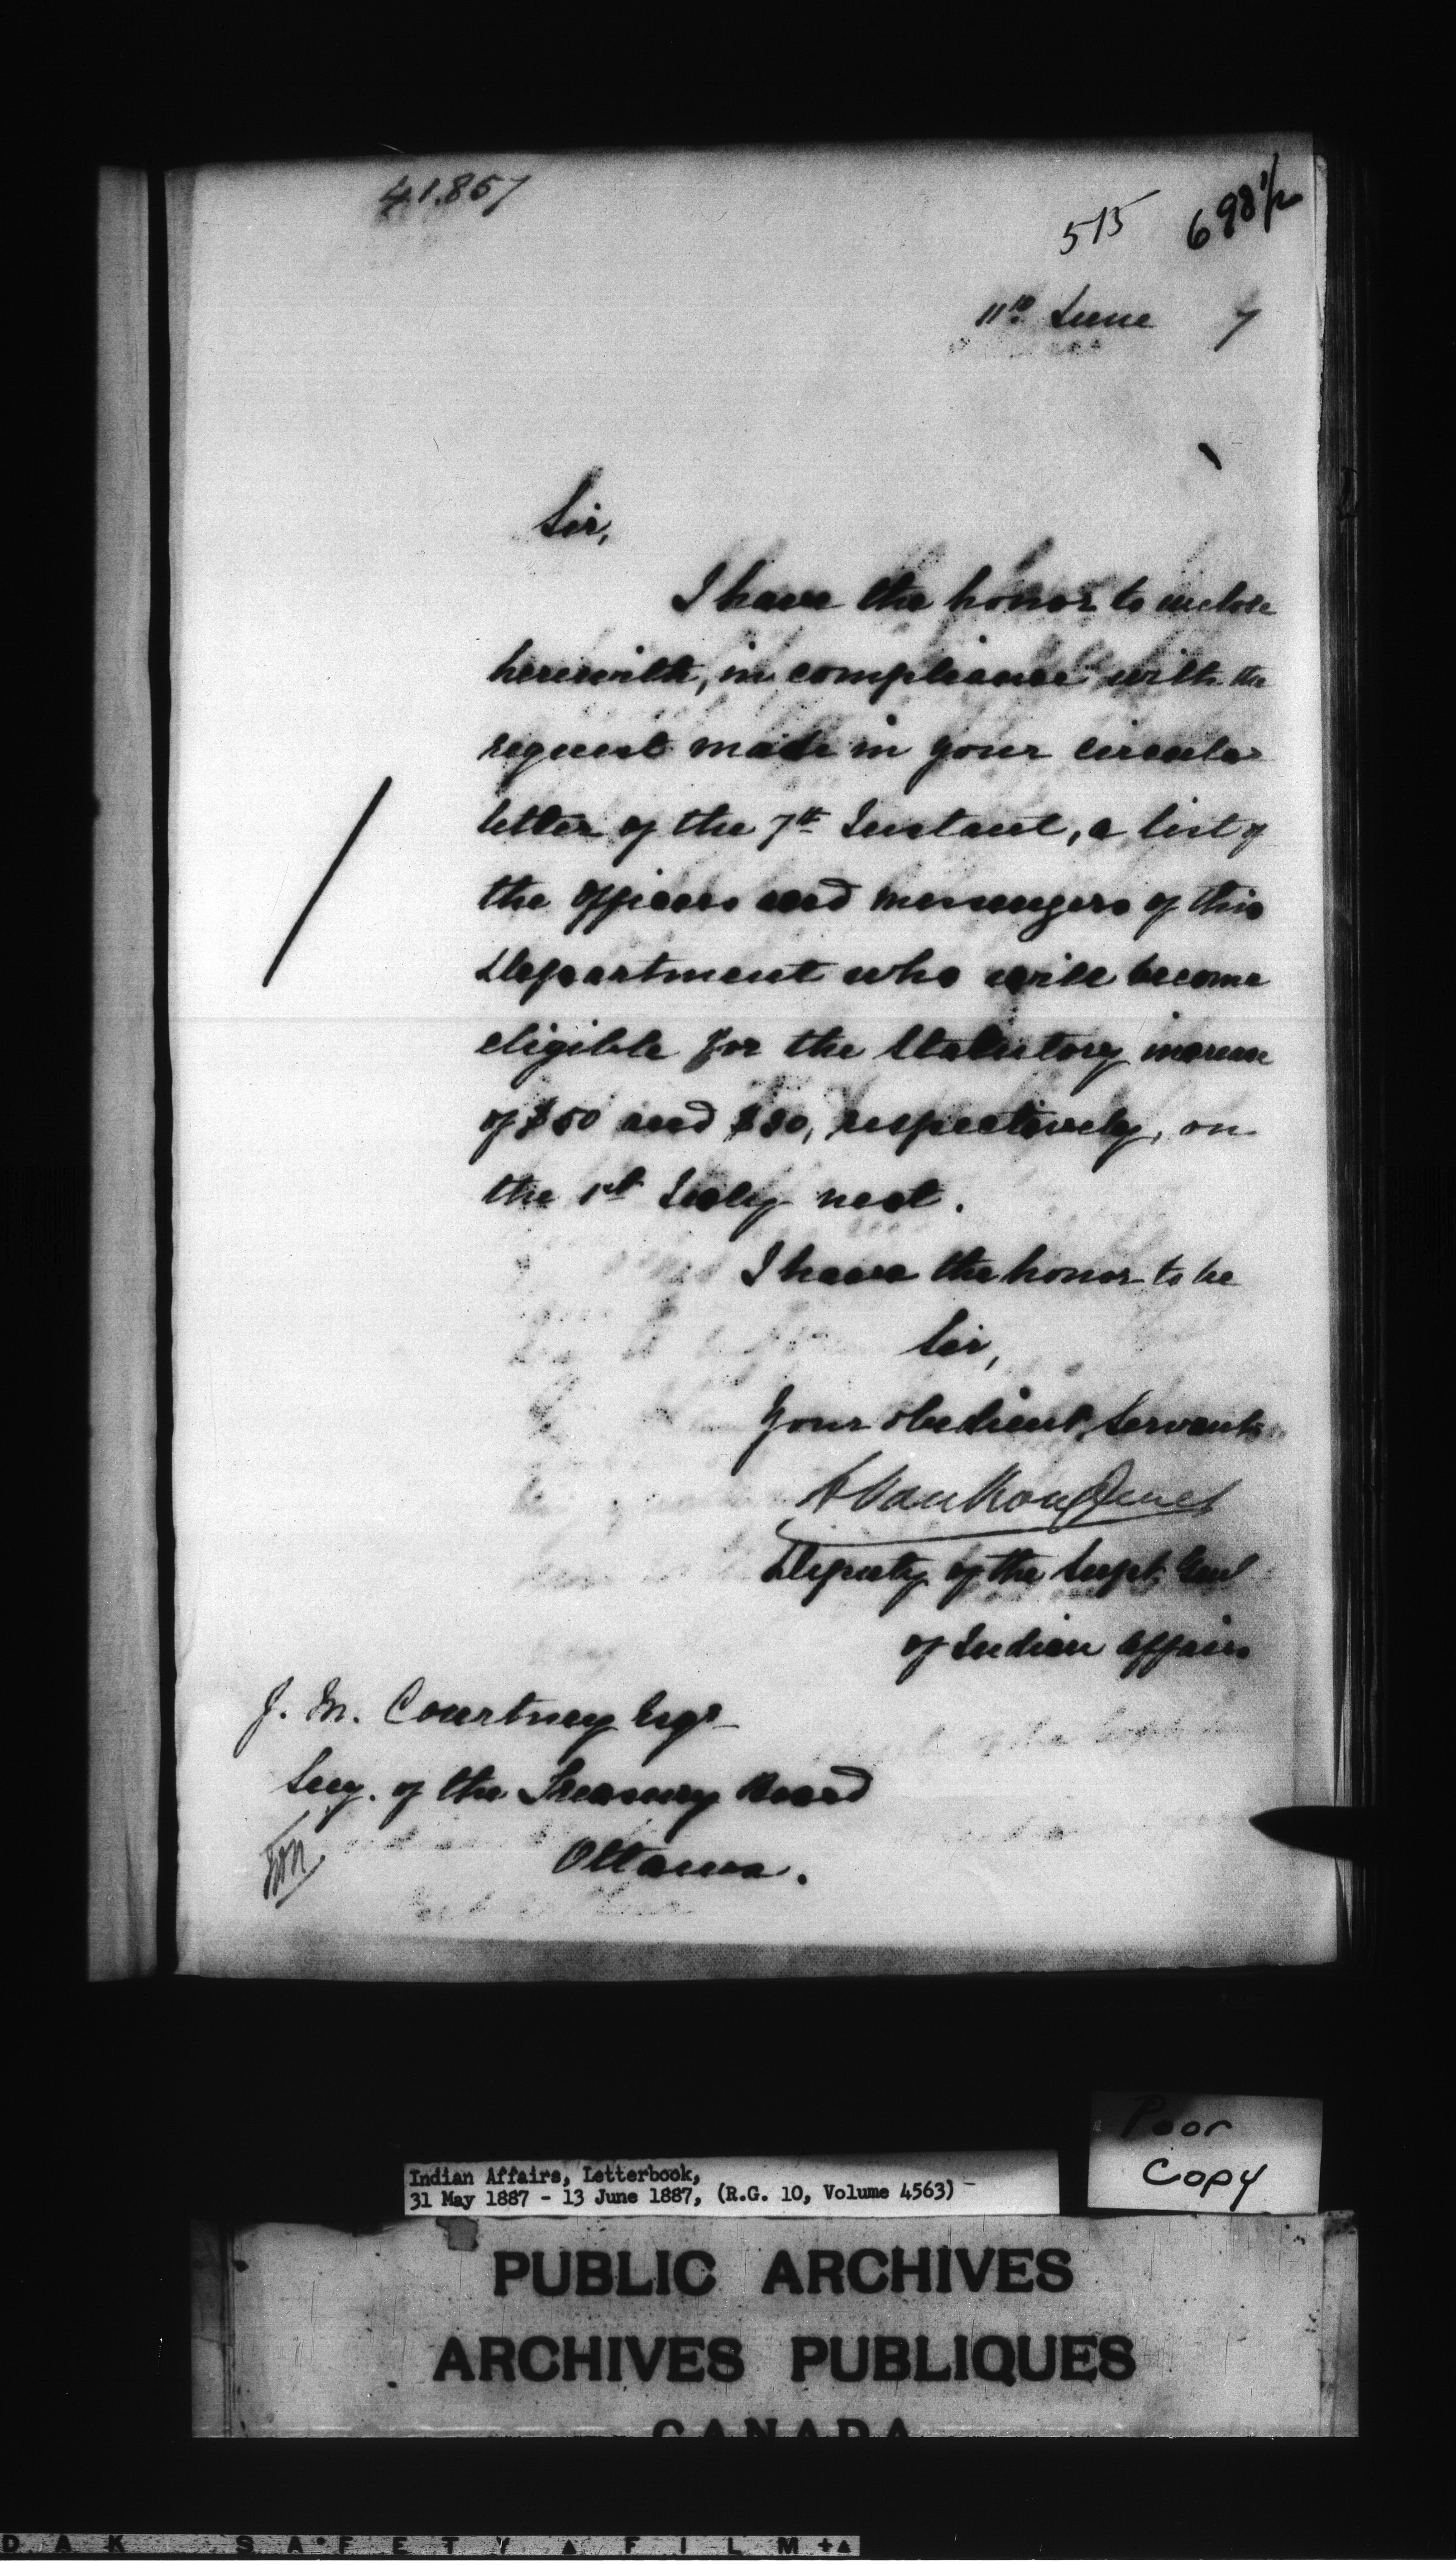 41.857
515 698½
11th June 7
Sir,
I have the honor to inclose
herewith, in compliance with the
request made in your circular
letter of the 7th Instant, a list of
the officers and messengers of this
Department who will become
eligible for the Statutory increase
of $50 and $30, respectively, on
the 1st July next.
I have the honor to be
Sir,
Your obedient Servant
L Vankoughnet
Deputy of the Supt. Genl
of Indian Affairs
J. M. Courtney Esqr
Secy. of the Treasury Board
Ottawa.
Poor
Copy
Indian Affairs, Letterbook,
31 May 1887 - 13 June 1887, (R.G. 10, Volume 4563)
PUBLIC ARCHIVES
ARCHIVES PUBLIQUES
CANADA
DAK SAFETY FILM